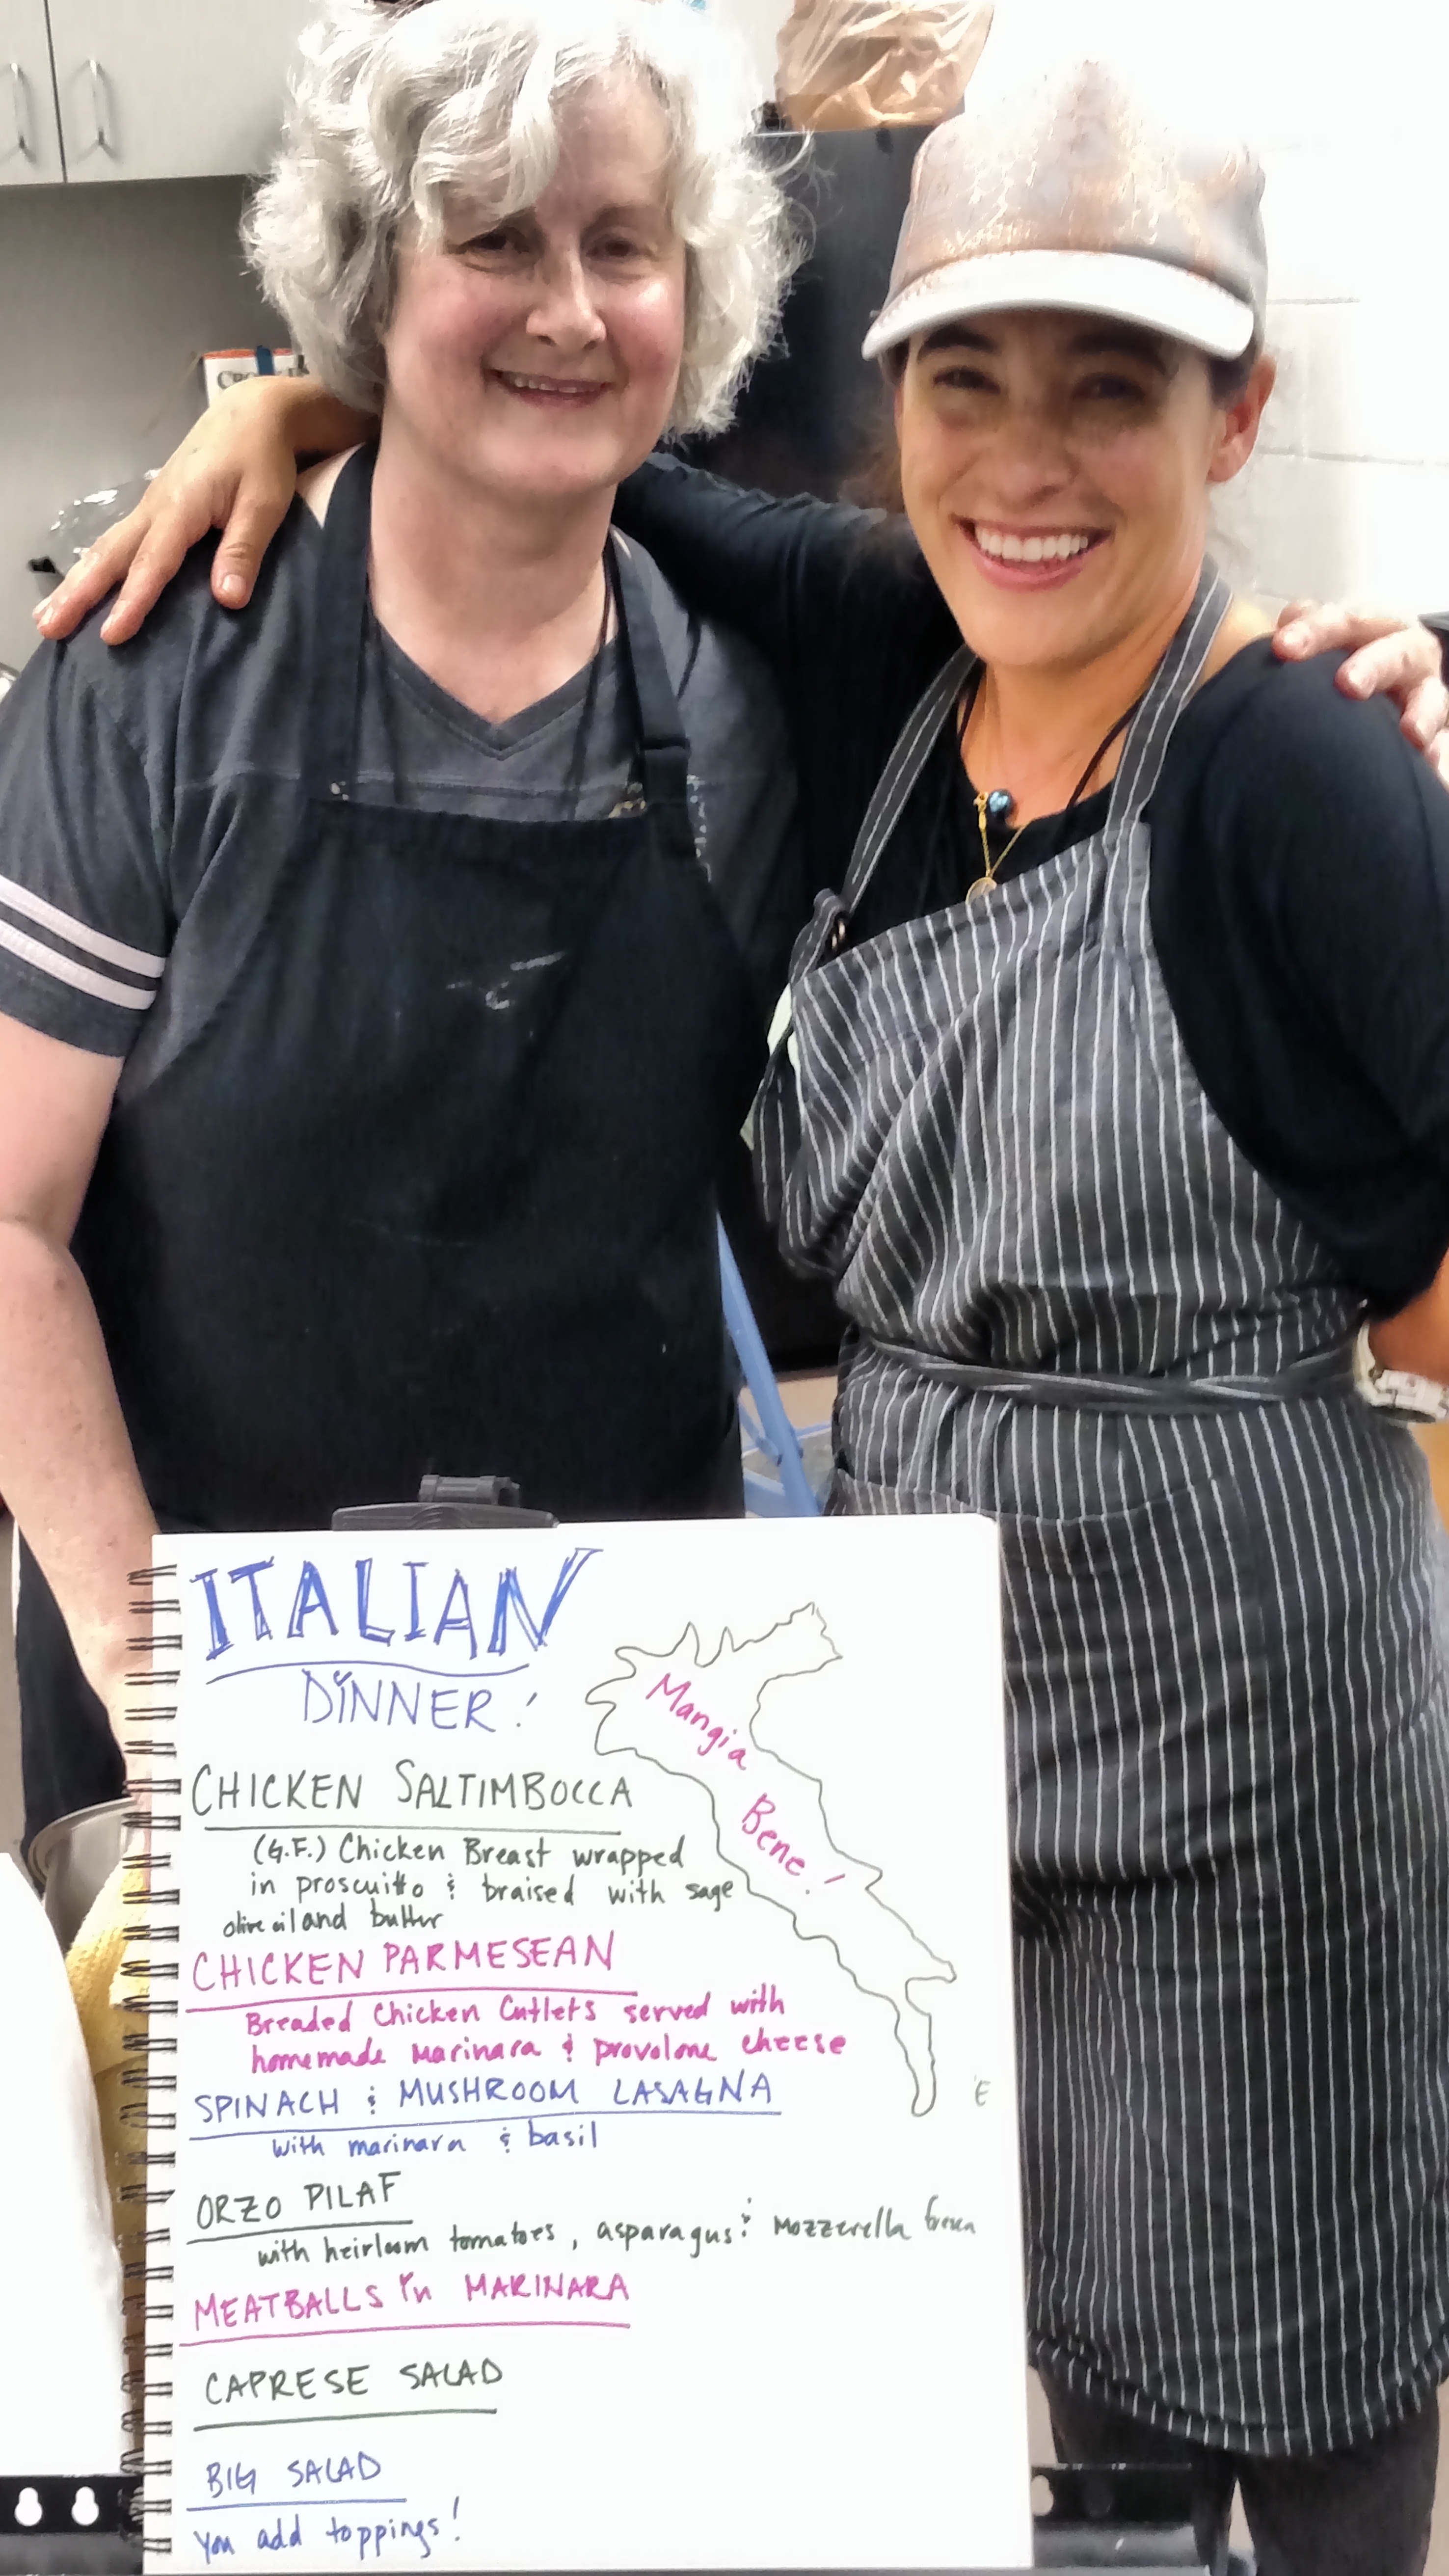 ITALIAN
DINNER!
Mangia
Bene!
CHICKEN SALTIMBOCCA
(G.F.) Chicken Breast wrapped
in proscuitto & braised with sage
olive oil and butter
CHICKEN PARMESEAN
Breaded Chicken Cutlets served with
homemade marinara & provolone cheese
SPINACH & MUSHROOM LASAGNA
with marinara & basil
ORZO PILAF
with heirloom tomatoes, asparagus & Mozzerella
MEATBALLS in MARINARA
CAPRESE SALAD
BIG SALAD
You add toppings!